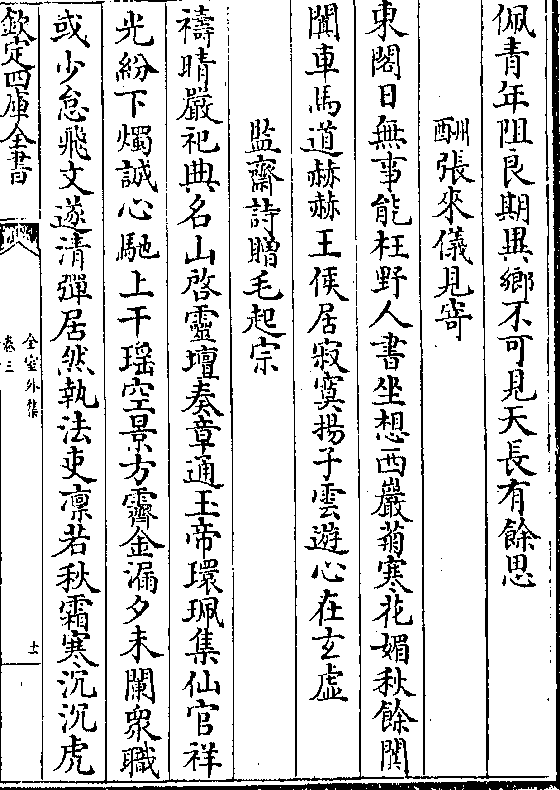 佩青年阻良期異鄉不可見天長有餘思
酬張來儀見寄
東閣日無事能枉野人書坐想西巖菊寒花媚秋餘閴
閴車馬道赫赫王侯居寂寞揚子雲遊心在玄虛
監齋詩贈毛起宗
禱晴嚴祀典名山啓靈壇奏章通玉帝環珮集仙官祥
光紛下燭誠心馳上干瑶空景方霽金漏夕未闌衆職
或少怠飛文遂清彈居然執法吏凛若秋霜寒沉沉虎
欽定四庫全書
全室外集
卷三
士